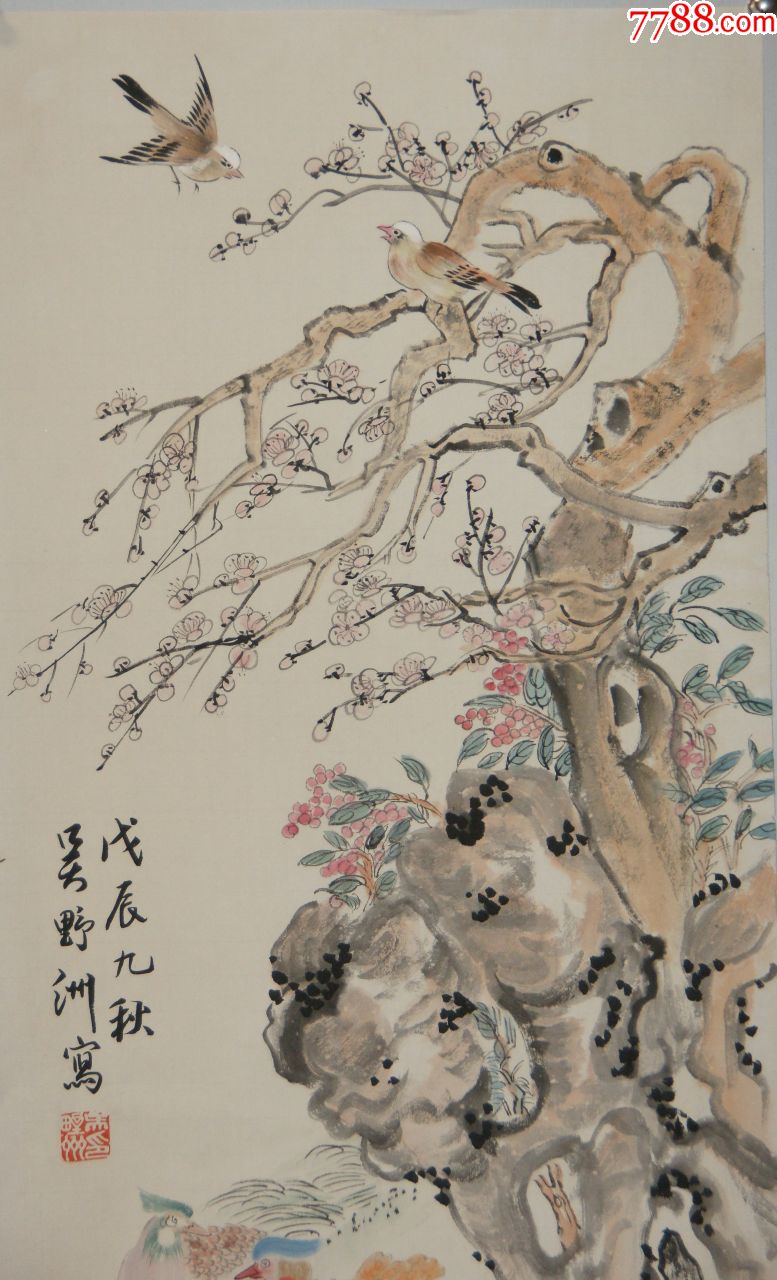 7788.com
戊辰九秋
吴野洲寫